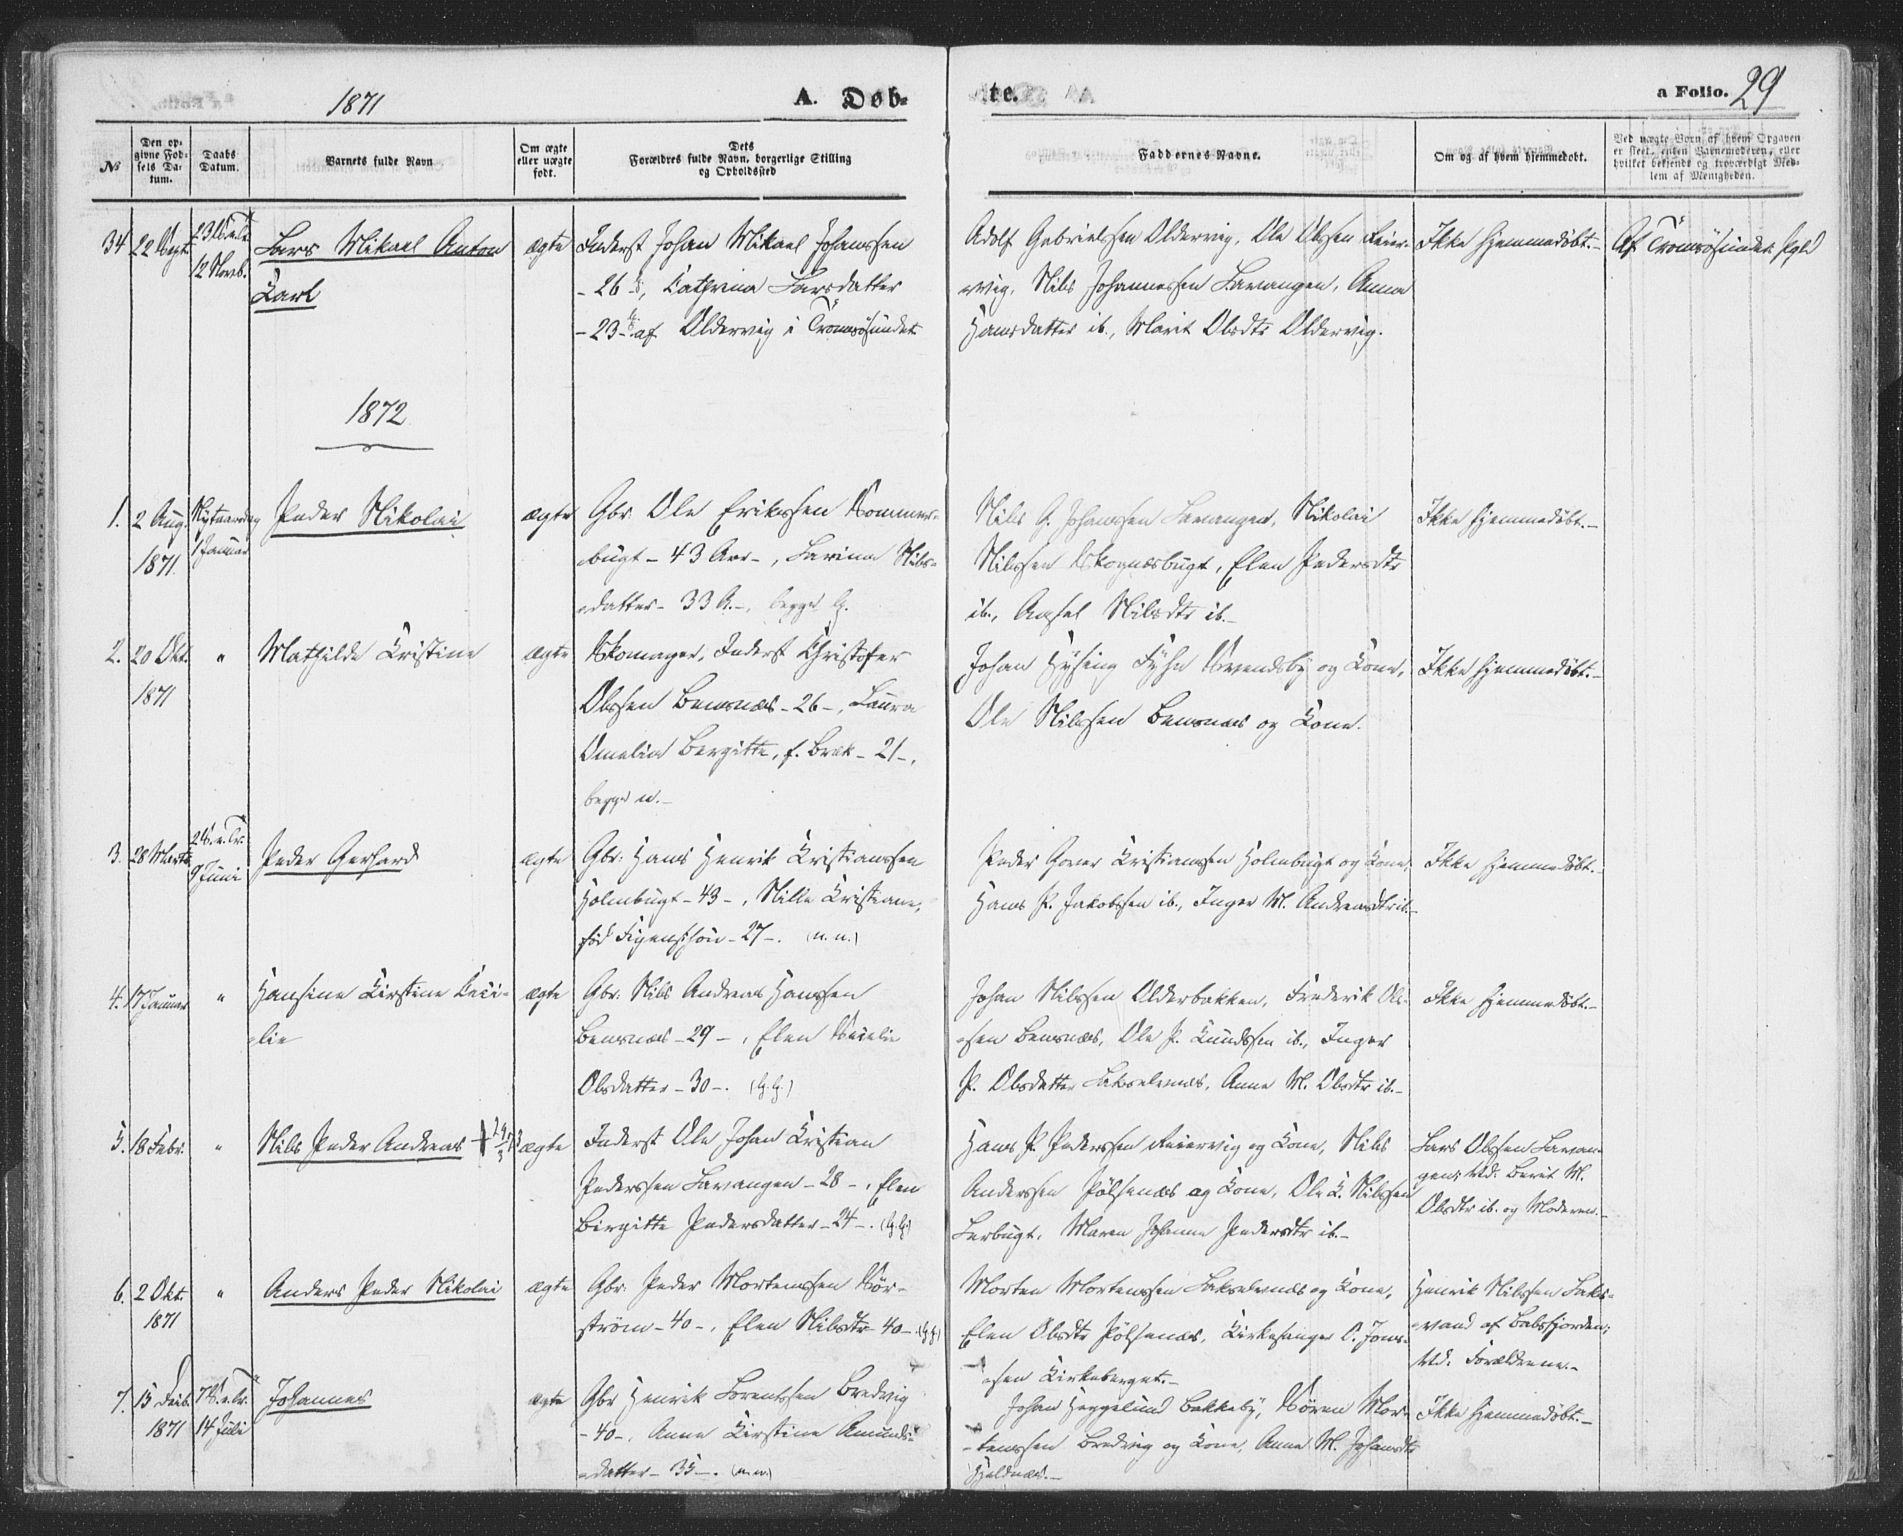 1871
A. Døb-
te.
a Folio. 29
№
Den op-
givne Fød-
sels Da-
tum.
Daabs
Datum.
Barnets fulde Navn
Om ægte
eller uægte
født.
Dets
Forældres fulde Navn, borgerlige Stilling
og Opholdssted
Faddernes Navne.
Om og af hvem hjemmedøbt.
Ved uægte Børn af hvem Opgaven
er skeet, enten Barnemoderen, eller
hvilket bekjendt og troværdigt Med-
lem af Menigheden.
34
12 Novb.
Lars Mikael Anton
Carl
ægte
Inderst Johan Mikael Johanssen
- 26 -, Cathrina Larsdatter
- 23 - af Oldervig i Tromsøsundet
Adolf Gabrielssen Oldervig, Ole Olssen Reier-
vig, Nils Johannessen Lavangen, Anna
Hansdatter ib., Marit Olsdtr Oldervig.
Ikke hjemmedøbt.-
Af Tromsøsundets Sogn
1872
1.
2 Aug.
1871.
Nytaarsdag
1 Januar
Peder Nikolai
ægte
Gbr. Ole Erikssen Sommer-
bugt - 43 Aar -, Larina Nils-
datter - 33 A. -, begge
Nils G. Johanssen Lavangen, Nikolai
Nilssen Skognæsbugt, Elen Pedersdtr
ib., Aaxel Nilsdtr ib.-
Ikke hjemmedøbt.-
2.
20 Okt.
1871
"
Mathilde Cristine
ægte
Skomager, Inderst Christofer
Olssen Bensnæs - 26 -, Laura
Omelia Bergitte, f. Bræk - 21 -,
begge n.-
Johan Hysing Fyhn Svendsby og Kone,
Ole Nilssen Bensnæs og Kone.
Ikke hjemmedøbt.-
3.
28 Marts
2 S. e. Tr.
9 Juni
Peder Gerhard
ægte
Gbr. Hans Henrik Kristianssen
Holmbugt - 43 -, Nille Kristiane,
fød Figenschou - 27 -. (n. n.)
Peder Goner Kristianssen Holmbugt og Kone,
Hans P. Jakobssen ib., Inger M. Andreasdtr ib.-
Ikke hjemmedøbt.-
4.
17 Januar
"
Hansine Kirstine Ceci-
lie
ægte
Gbr. Nils Andreas Hanssen
Bensnæs - 29 -, Elen Secelie
Olsdatter - 30 -.
Johan Nilssen Olderbakken, Frederik Ol-
sen Bensnæs, Ole P. Knudssen ib., Inger
P. Olsdatter Lakselvnæs, Anne M. Olsdtr ib.-
Ikke hjemmedøbt.-
5.
18 Febr.
"
Nils Peder Andreas
ægte
Inderst Ole Johan Kristian
Pederssen Lavangen - 28 -, Elen
Birgitte Pedersdatter - 24 -.
Hans P. Pederssen Reiervig og Kone, Nils
Anderssen Pølsenæs og Kone, Ole K. Nilssen
Lerbugt, Maren Johanna Pedersdtr ib.-
Lars Olssen Lavan-
gen; Vid. Berit M.
Olsdtr ib. og Moderen.-
6.
2 Okt.
1871
"
Anders Peder Nikolai
ægte
Gbr. Peder Mortenssen Sør-
strøm - 40 -, Elen Nilsdtr - 40 -.
Morten Mortenssen Lakselvnæs og Kone,
Elen Olsdtr Pølsenæs, Kirkesanger O. Jons-
sen Kirkeberget.-
Henrik Nilssen Laks-
vand af Balsfjorden;
Vid. Forældrene.-
7.
15 Decb.
1871
7 S. e. Tr.
14 Juli
Johannes
ægte
Gbr Henrik Lorentssen Bredvig
- 40 -, Anne Kirstine Amunds-
datter - 35 -. (n.n.)
Johan Heggelund Bakkeby, Søren Mor-
tenssen Bredvig og Kone, Anna M. Johansdtr
Ikke hjemmedøbt.-